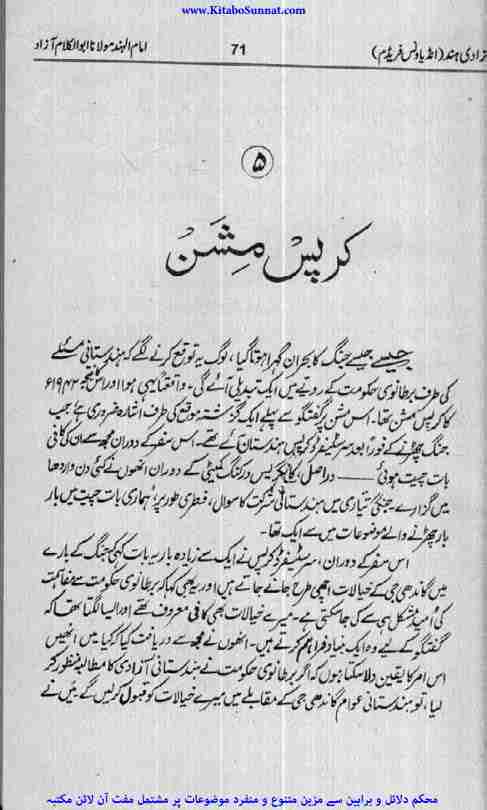 www.KitaboSunnat.com
زادی ہند (انڈیا ونس فریڈم) 71 امام الہند مولانا ابوالکلام آزاد
۵
کرپس مِشَن
جیسے جیسے جنگ کا بحران گہرا ہوتا گیا، لوگ یہ توقع کرنے لگے کہ ہندستانی مسئلے
کی طرف برطانوی حکومت کے رویے میں ایک تبدیلی آئے گی۔ واقعتاً یہی ہوا اور اس کا نتیجہ ۱۹۴۲ء
کا کرپس مشن تھا۔ اس مشن پر گفتگو سے پہلے ایک گزشتہ موقع کی طرف اشارہ ضروری ہے، جب
جنگ چھڑنے کے فوراً بعد سر سٹیفرڈ کرپس ہندستان آئے تھے۔ اس سفر کے دوران مجھ سے ان کی کافی
بات چیت ہوئی —— دراصل، کانگریس ورکنگ کمیٹی کے دوران انھوں نے کئی دن واردھا
میں گزارے۔ جنگی تیاری میں ہندستانی شرکت کا سوال، فطری طور پر، ہماری بات چیت میں بار
بار چھڑنے والے موضوعات میں سے ایک تھا۔
اس سفر کے دوران، سر سٹیفرڈ کرپس نے ایک سے زیادہ بار یہ بات کہی کہ جنگ کے بارے
میں گاندھی جی کے خیالات اچھی طرح جانے جاتے ہیں اور یہ بھی کہا کہ برطانوی حکومت سے مفاہمت
کی اُمید مشکل ہی سے کی جا سکتی ہے۔ میرے خیالات بھی کافی معروف تھے اور ایسا لگتا تھا کہ
گفتگو کے لیے وہ ایک بنیاد فراہم کرتے ہیں۔ انھوں نے مجھ سے دریافت کیا کہ کیا میں انھیں
اس امر کا یقین دلا سکتا ہوں کہ اگر برطانوی حکومت نے ہندستانی آزادی کا مطالبہ منظور کر
لیا، تو ہندستانی عوام گاندھی جی کے مقابلے میں میرے خیالات کو قبول کر لیں گے۔ میں نے
محکم دلائل و براہین سے مزین متنوع و منفرد موضوعات پر مشتمل مفت آن لائن مکتبہ